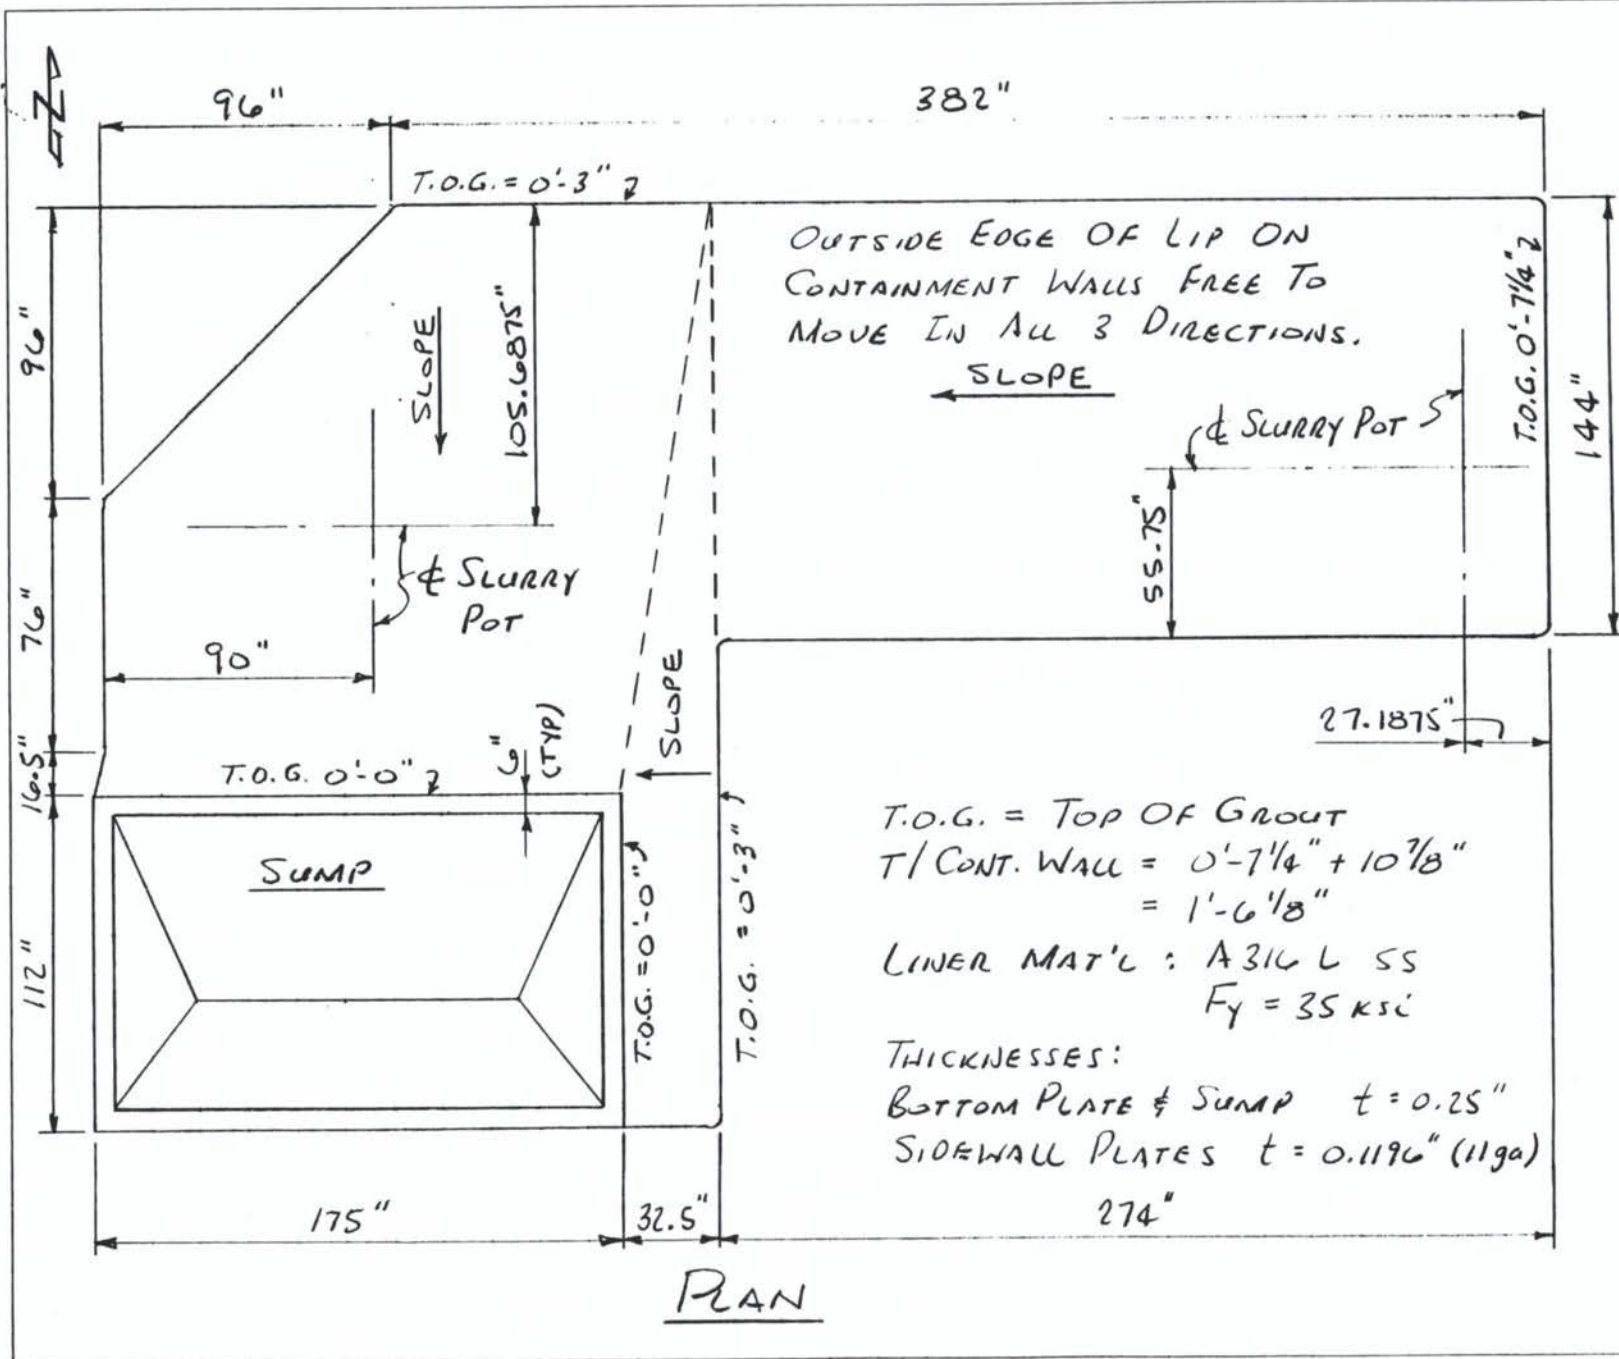 N
96"
382"
T.O.G. = 0'-3"
OUTSIDE EDGE OF LIP ON
CONTAINMENT WALLS FREE TO
MOVE IN ALL 3 DIRECTIONS.
SLOPE
T.O.G. 0'-7 1/4"
144"
96"
SLOPE
105.6875"
℄ SLURRY POT
55.75"
℄ SLURRY
POT
76"
90"
SLOPE
27.1875"
16.5"
T.O.G. 0'-0"
6"
(TYP)
SUMP
T.O.G. = 0'-0"
T.O.G. = 0'-3"
112"
T.O.G. = TOP OF GROUT
T/CONT. WALL = 0'-7 1/4" + 10 7/8"
= 1'-6 1/8"
LINER MAT'L : A316 L SS
Fy = 35 ksi
THICKNESSES:
BOTTOM PLATE & SUMP t = 0.25"
SIDEWALL PLATES t = 0.1196" (11ga)
175"
32.5"
274"
PLAN